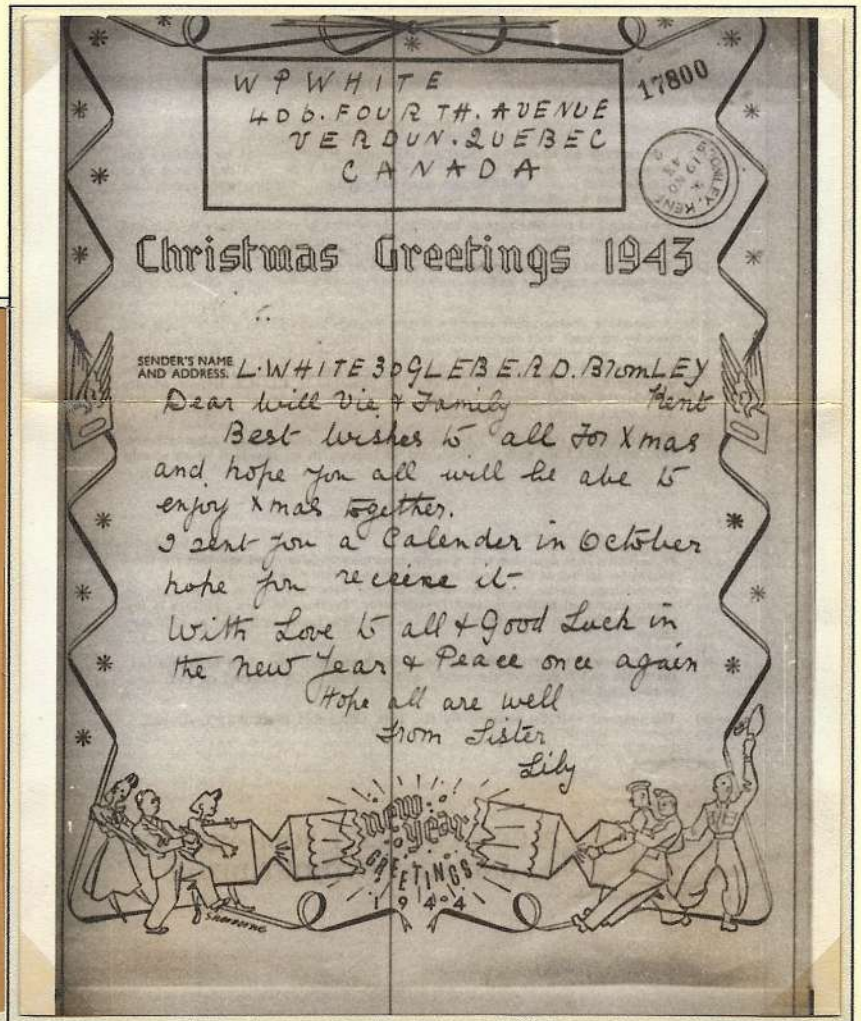 W P WHITE
406. FOURTH. AVENUE
VERDUN. QUEBEC
CANADA
17800
BROMLEY, KENT
19 NO
43
Christmas Greetings 1943
SENDER'S NAME
AND ADDRESS. L. WHITE 30 GLEBE. RD. BromLEY
Kent
Dear Will Vie & Family
Best wishes to all For Xmas
and hope you all will be abe to
enjoy Xmas together.
I sent you a Calender in October
hope you receive it.
With Love to all & Good Luck in
the new Year & Peace once again
Hope all are well
From Sister
Lily
new
year
GREETINGS
1944